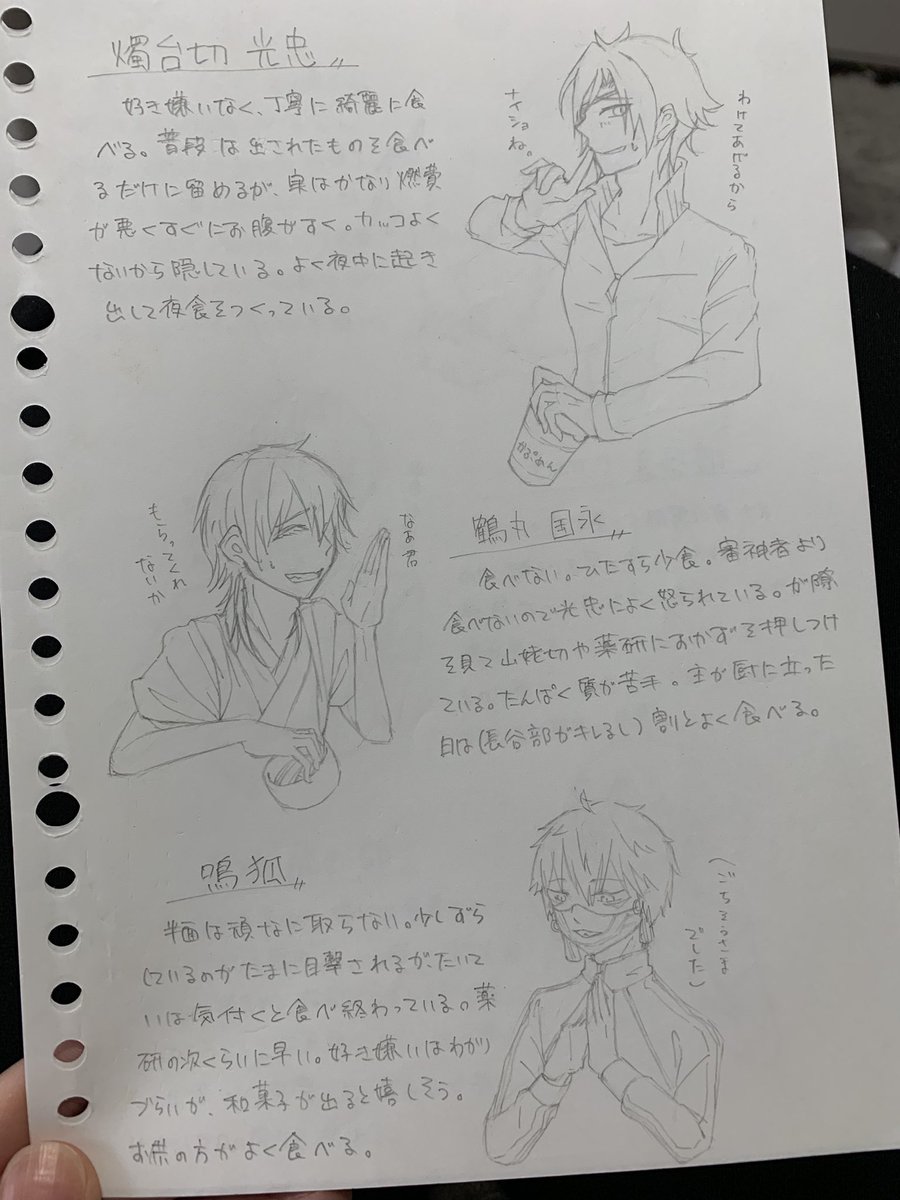 燭台切 光忠〃
好き嫌いなく、丁寧に綺麗に食
べる。普段は出されたものを食べ
るだけに留めるが、実はかなり燃費
が悪くすぐにお腹がすく。カッコよく
ないから隠している。よく夜中に起き
出して夜食をつくっている。
わけてあげるから
ナイショね。
かっぷめん
鶴丸 国永〃
食べない。ひたすら少食。審神者より
食べないので光忠によく怒られている。が隙
を見て山姥切や薬研におかずを押しつけ
ている。たんぱく質が苦手。主が厨に立った
日は(長谷部がキレるし)割とよく食べる。
なあ君
もらってくれ
ないか
鳴狐〃
半面は頑なに取らない。少しずら
しているのがたまに目撃されるが、たいて
いは気付くと食べ終わっている。薬
研の次くらいに早い。好き嫌いはわかり
づらいが、和菓子が出ると嬉しそう。
お供の方がよく食べる。
(ごちそうさま
でした)